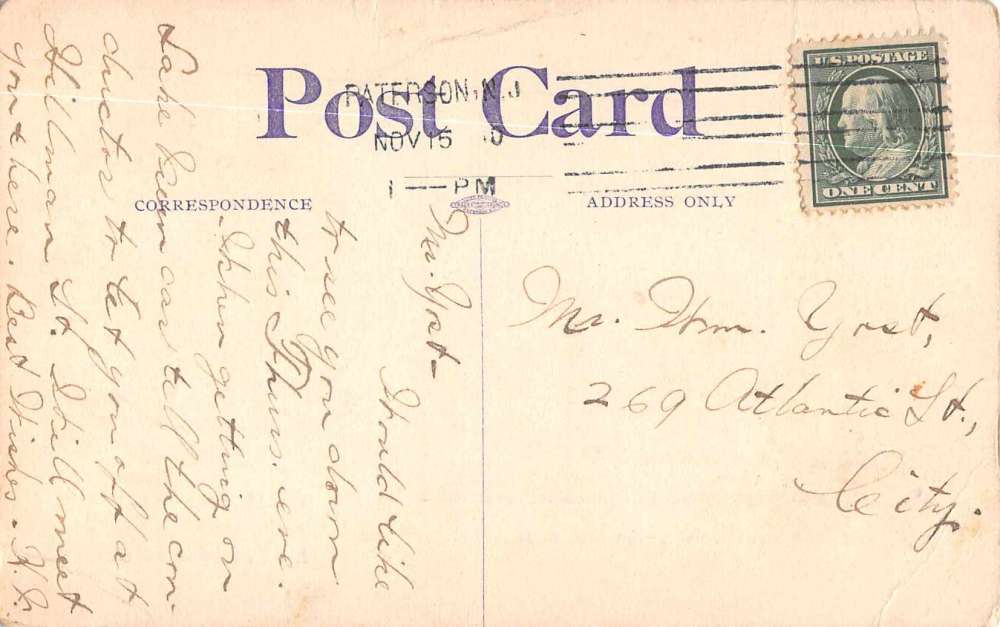 Post Card
PATERSON, N.J
NOV 15
1 — PM
U.S. POSTAGE
ONE CENT
CORRESPONDENCE
ADDRESS ONLY
Mr. Yost—
Would like
to see you down
this Thurs. eve.
When getting on
Lake View car tell the con-
ductor to let you off at
Hillman St. I will meet
you there. Best Wishes -
Mr. Wm. Yost,
269 Atlantic St.,
City.